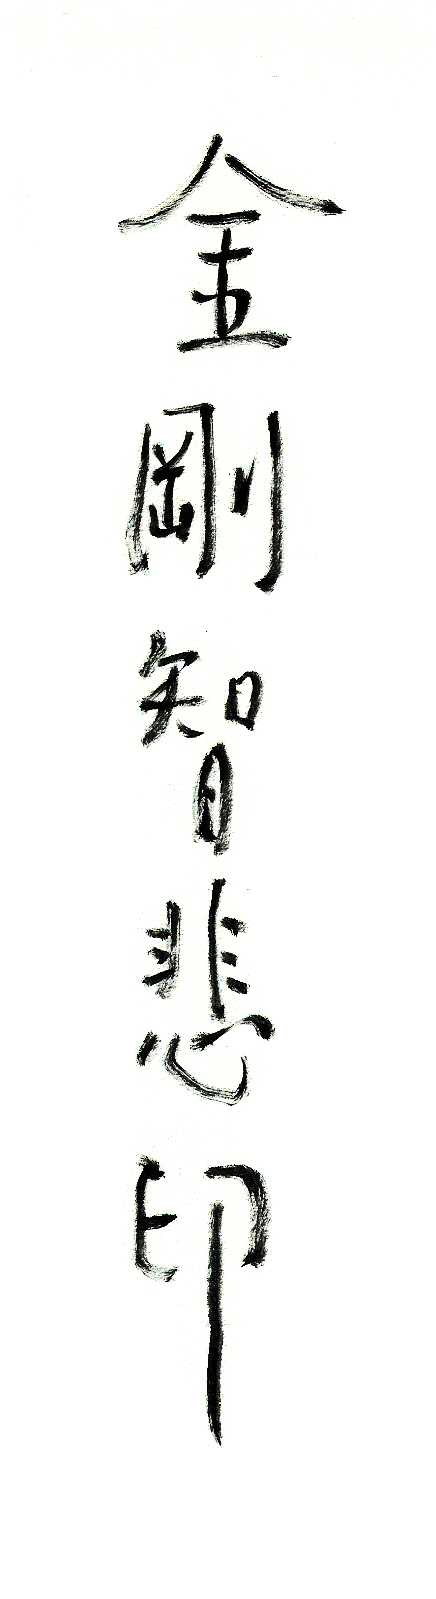 金剛智悲印